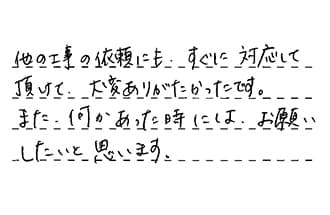 他の工事の依頼にも、すぐに対応して
頂けて、大変ありがたかったです。
また、何かあった時には、お願い
したいと思います。